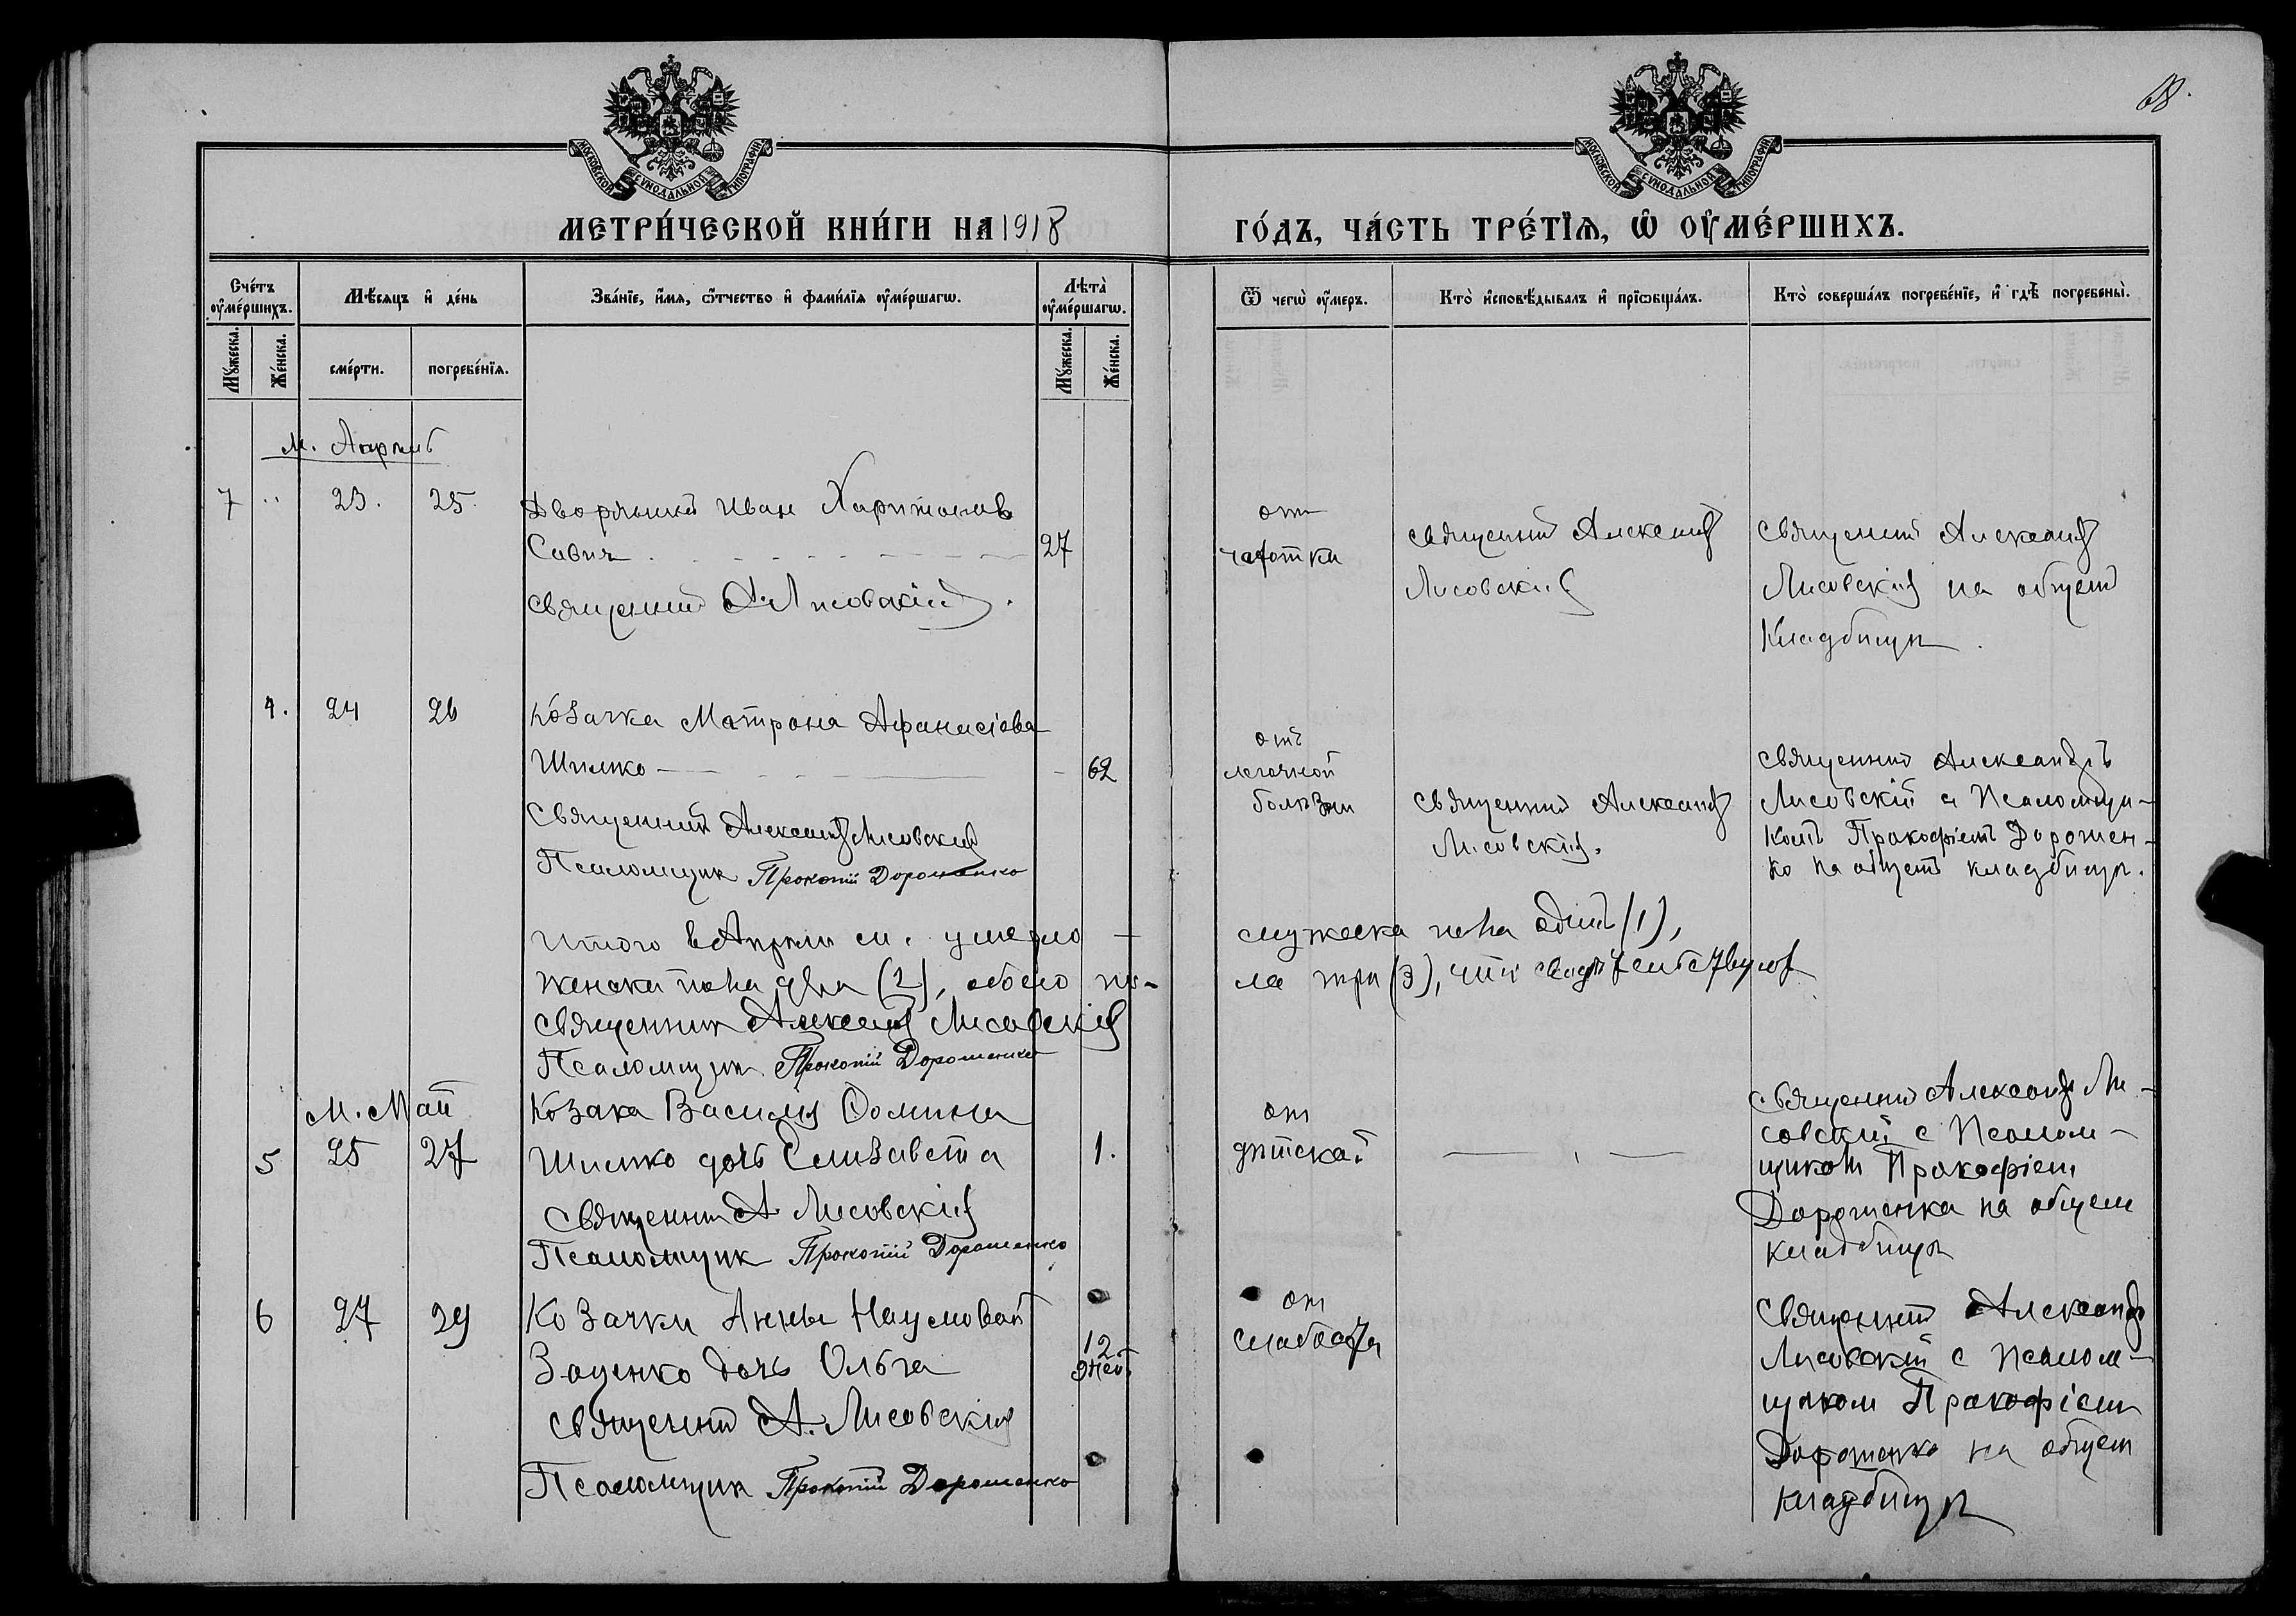 68.
МОСКОВСКОЙ СѴНОДАЛЬНОЙ ТИПОГРАФІИ
МОСКОВСКОЙ СѴНОДАЛЬНОЙ ТИПОГРАФІИ
МЕТРИ́ЧЕСКОЙ КНИ́ГИ НА 1918 ГО́ДЪ, ЧА́СТЬ ТРЕ́ТЇѦ, Ѡ҆ ОУ҆МЕ́РШИХЪ.
Сче́тъ оу҆ме́ршихъ.
Мꙋ́жеска.
Же́нска.
Мѣ́сяцъ и҆ де́нь
сме́рти.
погребе́нїѧ.
Зва́нїе, и҆́мѧ, ѻ҆́тчество и҆ фами́лїѧ оу҆ме́ршагѡ.
Лѣта̀ оу҆ме́ршагѡ.
Мꙋ́жеска.
Же́нска.
Ѿ чегѡ̀ оу҆́меръ.
Кто̀ и҆сповѣ́дывалъ и҆ прїѡбща́лъ.
Кто̀ соверша́лъ погребе́нїе, и҆ гдѣ̀ погребены̀.
м. Апрель
7 " 23. 25. Дворянин Иван Харитонов
Савич 27
священник А. Лисовскій.
от
чахотки
священник Александр
Лисовскій
священник Александр
Лисовскій на общем
Кладбищѣ.
4. 24 26 Козачка Матрона Афанасіева
Шилко 62
Священник Александр Лисовскій
Псаломщик Прокопій Дорошенко
отъ
легочной
болѣзни
священник Александр
Лисовскій.
священник Александръ
Лисовскій с Псаломщи-
комъ Прокофіемъ Дорошен-
ко на общемъ кладбищѣ.
Итого в Апрѣли м. умерло мужеска пола один (1),
женска пола два (2), обоего по- ла три (3), что свидѣтельствуют
священник Александр Лисовскій
Псаломщик Прокопій Дорошенко
М. Май
Козака Василія Фомина
5 25 27 Шилко дочь Елизавета 1.
священник А Лисовскій
Псаломщик Прокопій Дорошенко
от
дѣтской
священник Александр Ли-
совский с Псалом-
щиком Прокофіем
Дорошенка на общем
кладбищѣ
6 27 29 Козачки Анны Наумовой
Заценко дочь Ольга 12 дней
священник А. Лисовский
Псаломщик Прокопій Дорошенко
от
слабости
священник Александр
Лисовский с Псалом-
щиком Прокофіем
Дорошенко на общем
кладбищѣ